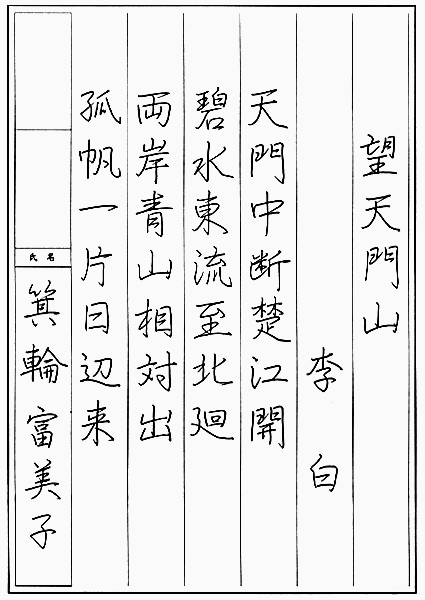 望天門山
李白
天門中断楚江開
碧水東流至北廻
両岸青山相対出
孤帆一片日辺来
氏名
箕輪富美子